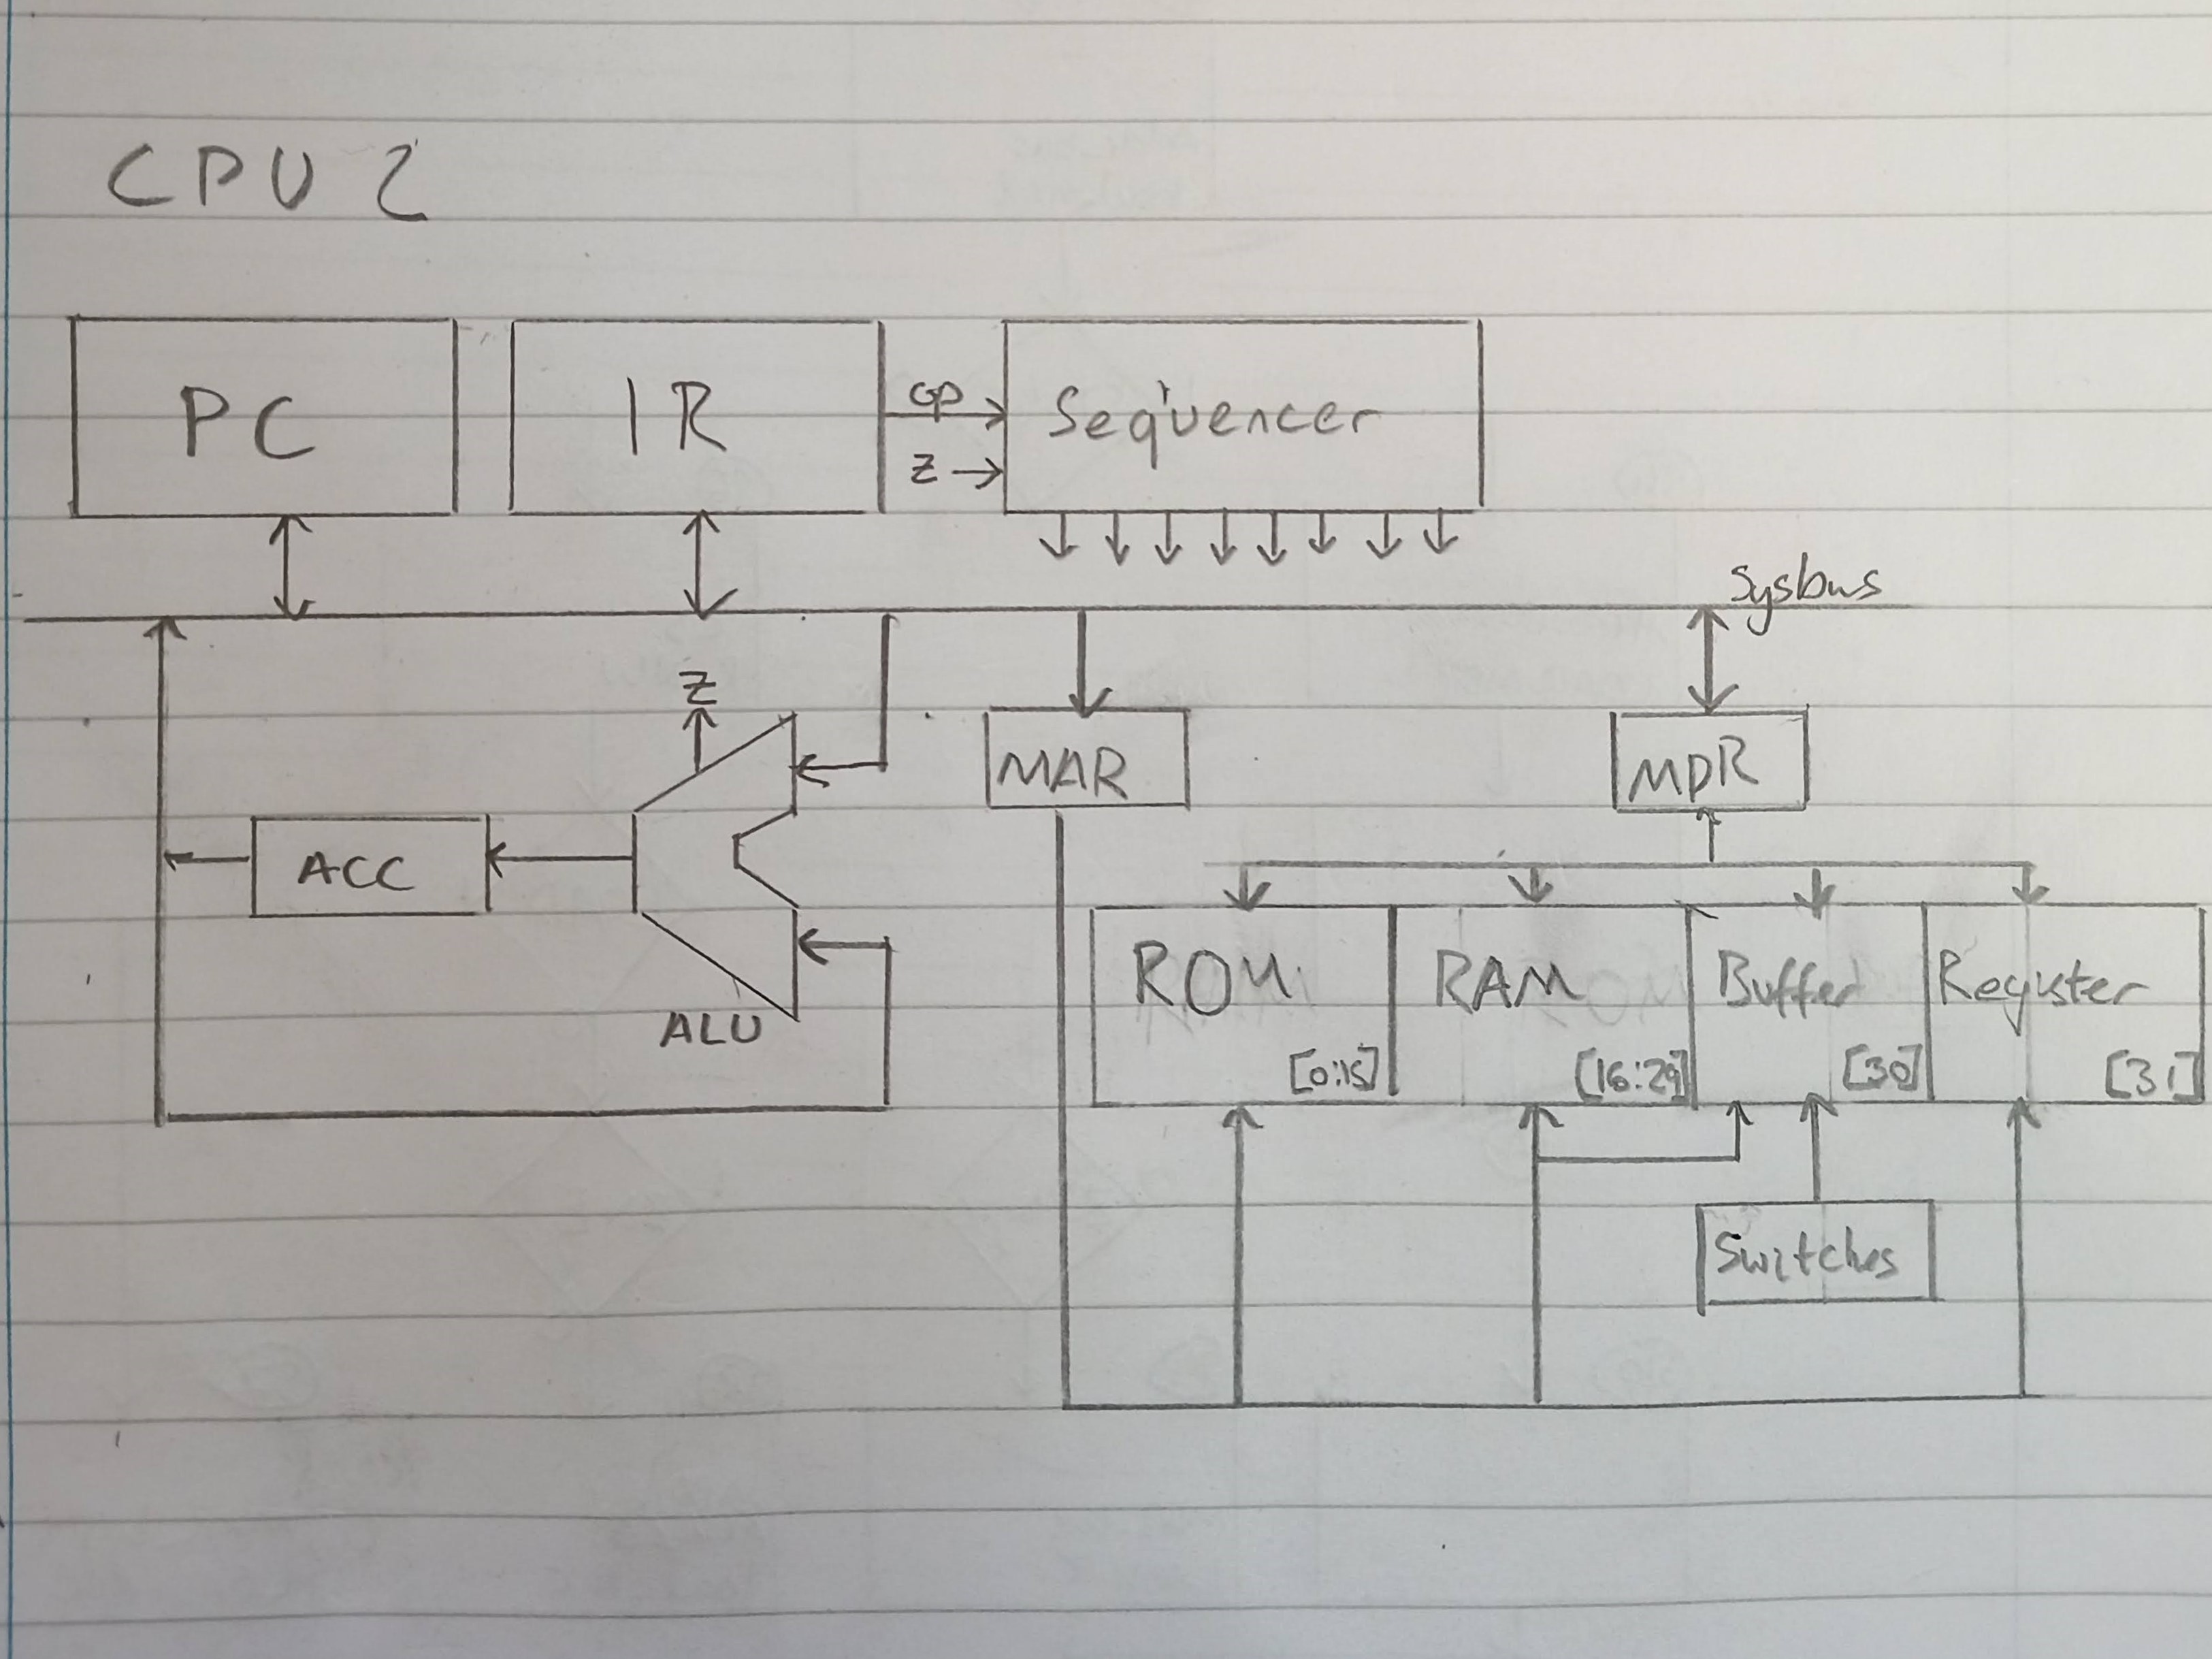 CPU 2
PC
IR
op
Z
Sequencer
Sysbus
Z
MAR
MDR
ACC
ALU
ROM
[0:15]
RAM
[16:29]
Buffer
[30]
Register
[31]
Switches